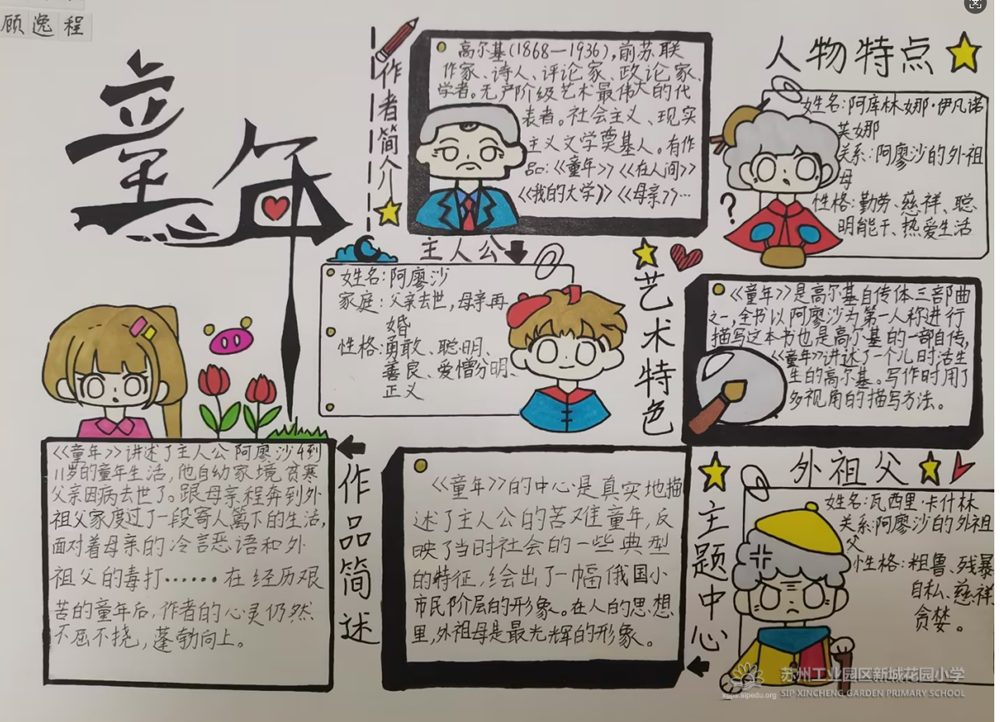 顾逸程
童年
作者简介
高尔基(1868—1936),前苏联
作家、诗人、评论家、政论家、
学者。无产阶级艺术最伟大的代
表者。社会主义、现实
主义文学奠基人。有作
品:《童年》《在人间》
《我的大学》《母亲》…
人物特点
姓名:阿库林娜·伊凡诺
芙娜
关系:阿廖沙的外祖
母
性格:勤劳、慈祥、聪
明能干、热爱生活
?
主人公
姓名:阿廖沙
家庭:父亲去世,母亲再
婚
性格:勇敢、聪明、
善良、爱憎分明、
正义
艺术特色
《童年》是高尔基自传体三部曲
之一,全书以阿廖沙为第一人称进行
描写这本书也是高尔基的一部自传,
《童年》讲述了一个儿时活生
生的高尔基。写作时用了
多视角的描写方法。
作品简述
《童年》讲述了主人公阿廖沙4到
11岁的童年生活,他自幼家境贫寒
父亲因病去世了。跟母亲程奔到外
祖父家度过了一段寄人篱下的生活,
面对着母亲的冷言恶语和外
祖父的毒打……在经历艰
苦的童年后,作者的心灵仍然
不屈不挠,蓬勃向上。
主题中心
《童年》的中心是真实地描
述了主人公的苦难童年,反
映了当时社会的一些典型
的特征,绘出了一幅俄国小
市民阶层的形象。在人的思想
里,外祖母是最光辉的形象。
外祖父
姓名:瓦西里·卡什林
关系:阿廖沙的外祖
父
性格:粗鲁、残暴
自私、慈祥
贪婪。
苏州工业园区新城花园小学
SIP XINCHENG GARDEN PRIMARY SCHOOL